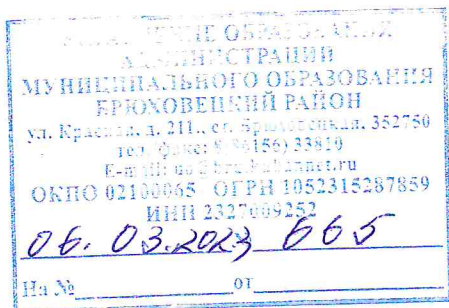 УПРАВЛЕНИЕ ОБРАЗОВАНИЯ
АДМИНИСТРАЦИИ
МУНИЦИПАЛЬНОГО ОБРАЗОВАНИЯ
БРЮХОВЕЦКИЙ РАЙОН
ул. Красная, д. 211., ст. Брюховецкая, 352750
тел. факс: 8(86156) 33810
E-mail:
ОКПО 02100065 ОГРН 1052315287859
ИНН 2327009252
06.03.2023 665
На № от